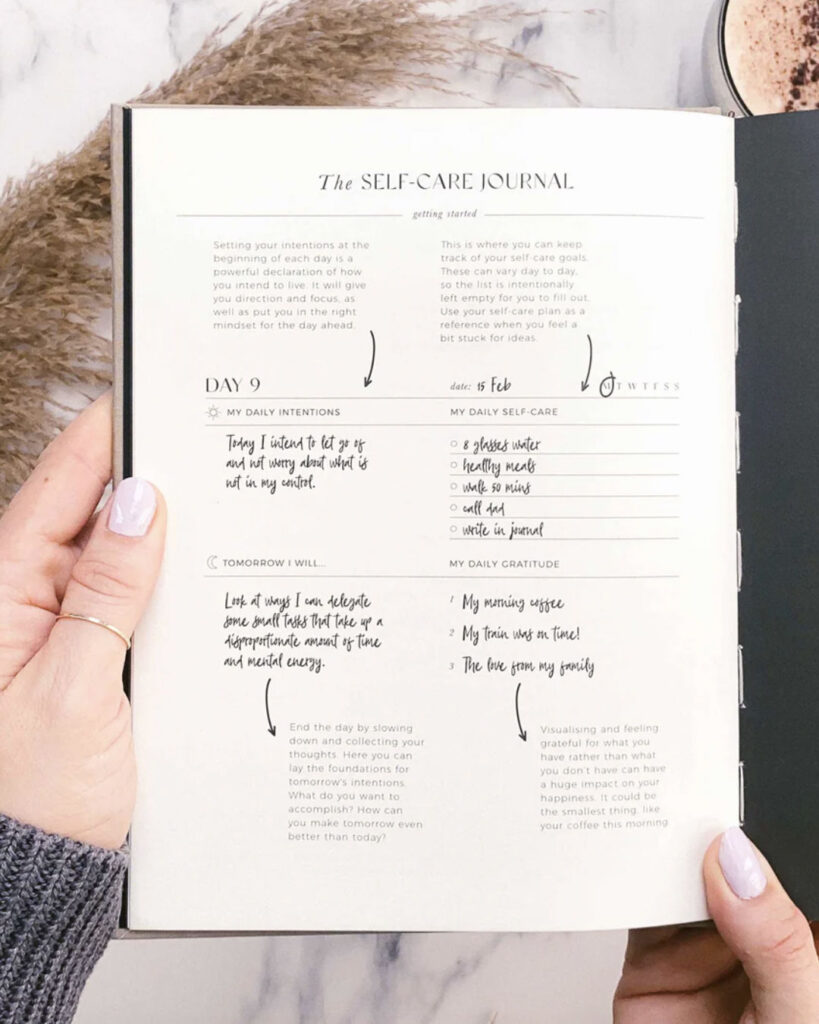 The SELF-CARE JOURNAL
getting started
Setting your intentions at the
beginning of each day is a
powerful declaration of how
you intend to live. It will give
you direction and focus, as
well as put you in the right
mindset for the day ahead.
This is where you can keep
track of your self-care goals.
These can vary day to day,
so the list is intentionally
left empty for you to fill out.
Use your self-care plan as a
reference when you feel a
bit stuck for ideas.
DAY 9
date: 15 Feb
M T W T F S S
MY DAILY INTENTIONS
Today I intend to let go of
and not worry about what is
not in my control.
MY DAILY SELF-CARE
8 glasses water
healthy meals
walk 30 mins
call dad
write in journal
TOMORROW I WILL...
Look at ways I can delegate
some small tasks that take up a
disproportionate amount of time
and mental energy.
MY DAILY GRATITUDE
1 My morning coffee
2 My train was on time!
3 The love from my family
End the day by slowing
down and collecting your
thoughts. Here you can
lay the foundations for
tomorrow's intentions.
What do you want to
accomplish? How can
you make tomorrow even
better than today?
Visualising and feeling
grateful for what you
have rather than what
you don't have can have
a huge impact on your
happiness. It could be
the smallest thing, like
your coffee this morning